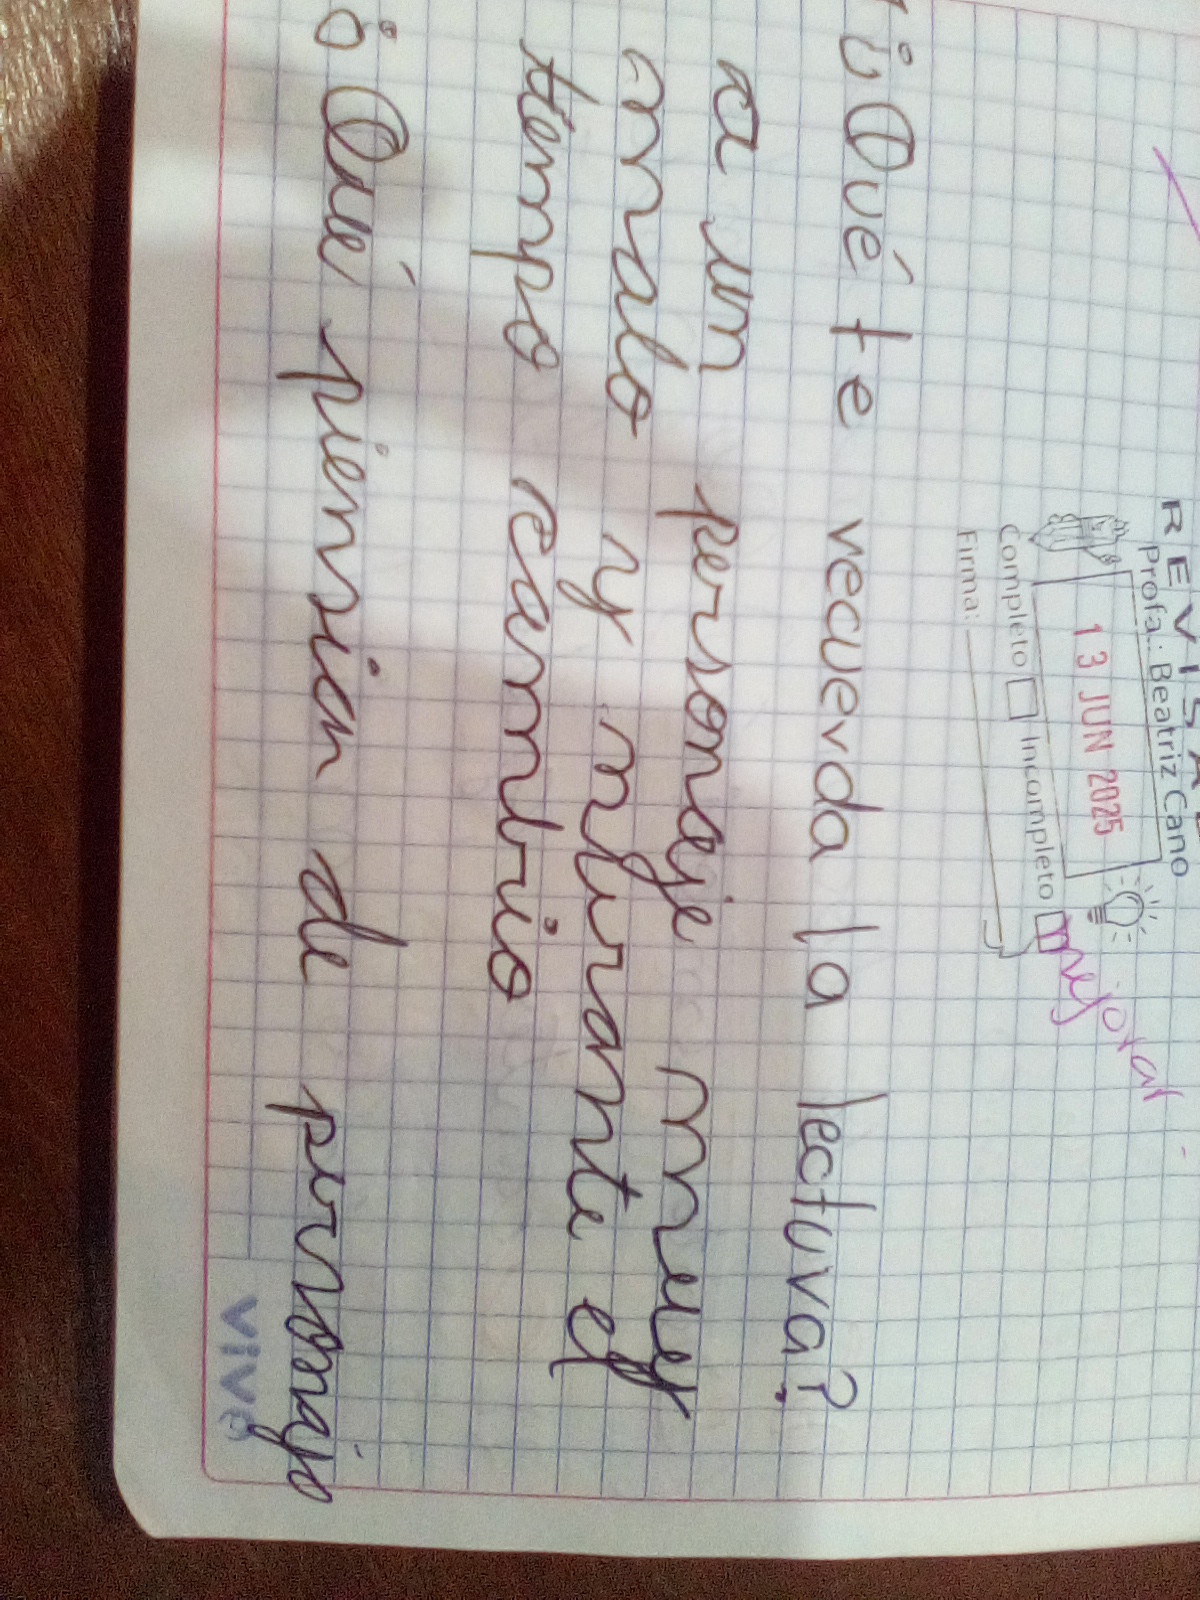 REVISA
Profa.: Beatriz Cano
13 JUN 2025
Completo Incompleto
mejorar
Firma:
¿Qué te recuerda la lectura?
a un personaje muy
malo y mi el
tiempo cambio
¿Qué piensan de personajo
vive